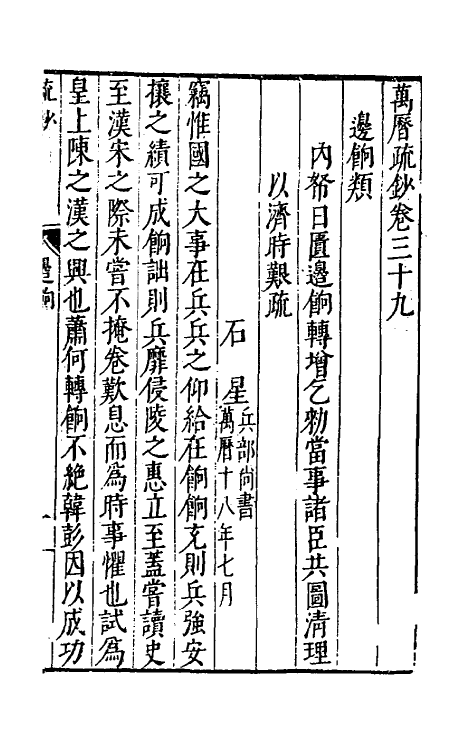 萬曆疏鈔卷三十九
邊餉類
內帑日匱邊餉轉增乞勑當事諸臣共圖清理
以濟時艱疏
石星兵部尚書萬曆十八年七月
竊惟國之大事在兵兵之仰給在餉餉充則兵強安
攘之績可成餉詘則兵靡侵陵之惠立至蓋嘗讀史
至漢宋之際未嘗不掩卷歎息而為時事懼也試為
皇上陳之漢之興也蕭何轉餉不絕韓彭因以成功
疏鈔 邊餉 一